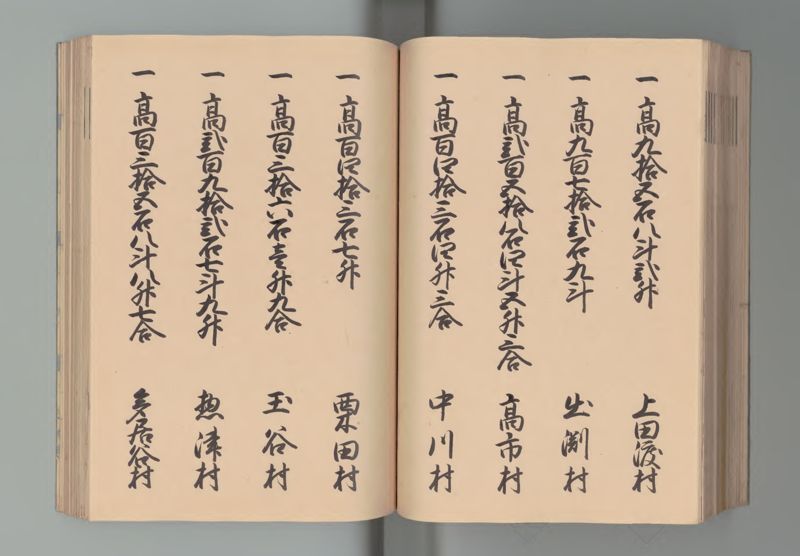 一 高九拾五石八斗弐升 上田渡村
一 高九百七拾弐石九斗 出渕村
一 高弐百五拾八石四斗五升三合 高市村
一 高百四拾三石四升三合 中川村
一 高百四拾三石七升 栗田村
一 高百三拾六石壱升九合 玉谷村
一 高弐百九拾弐石七斗九升 惣津村
一 高百三拾五石八斗八升七合 多居谷村